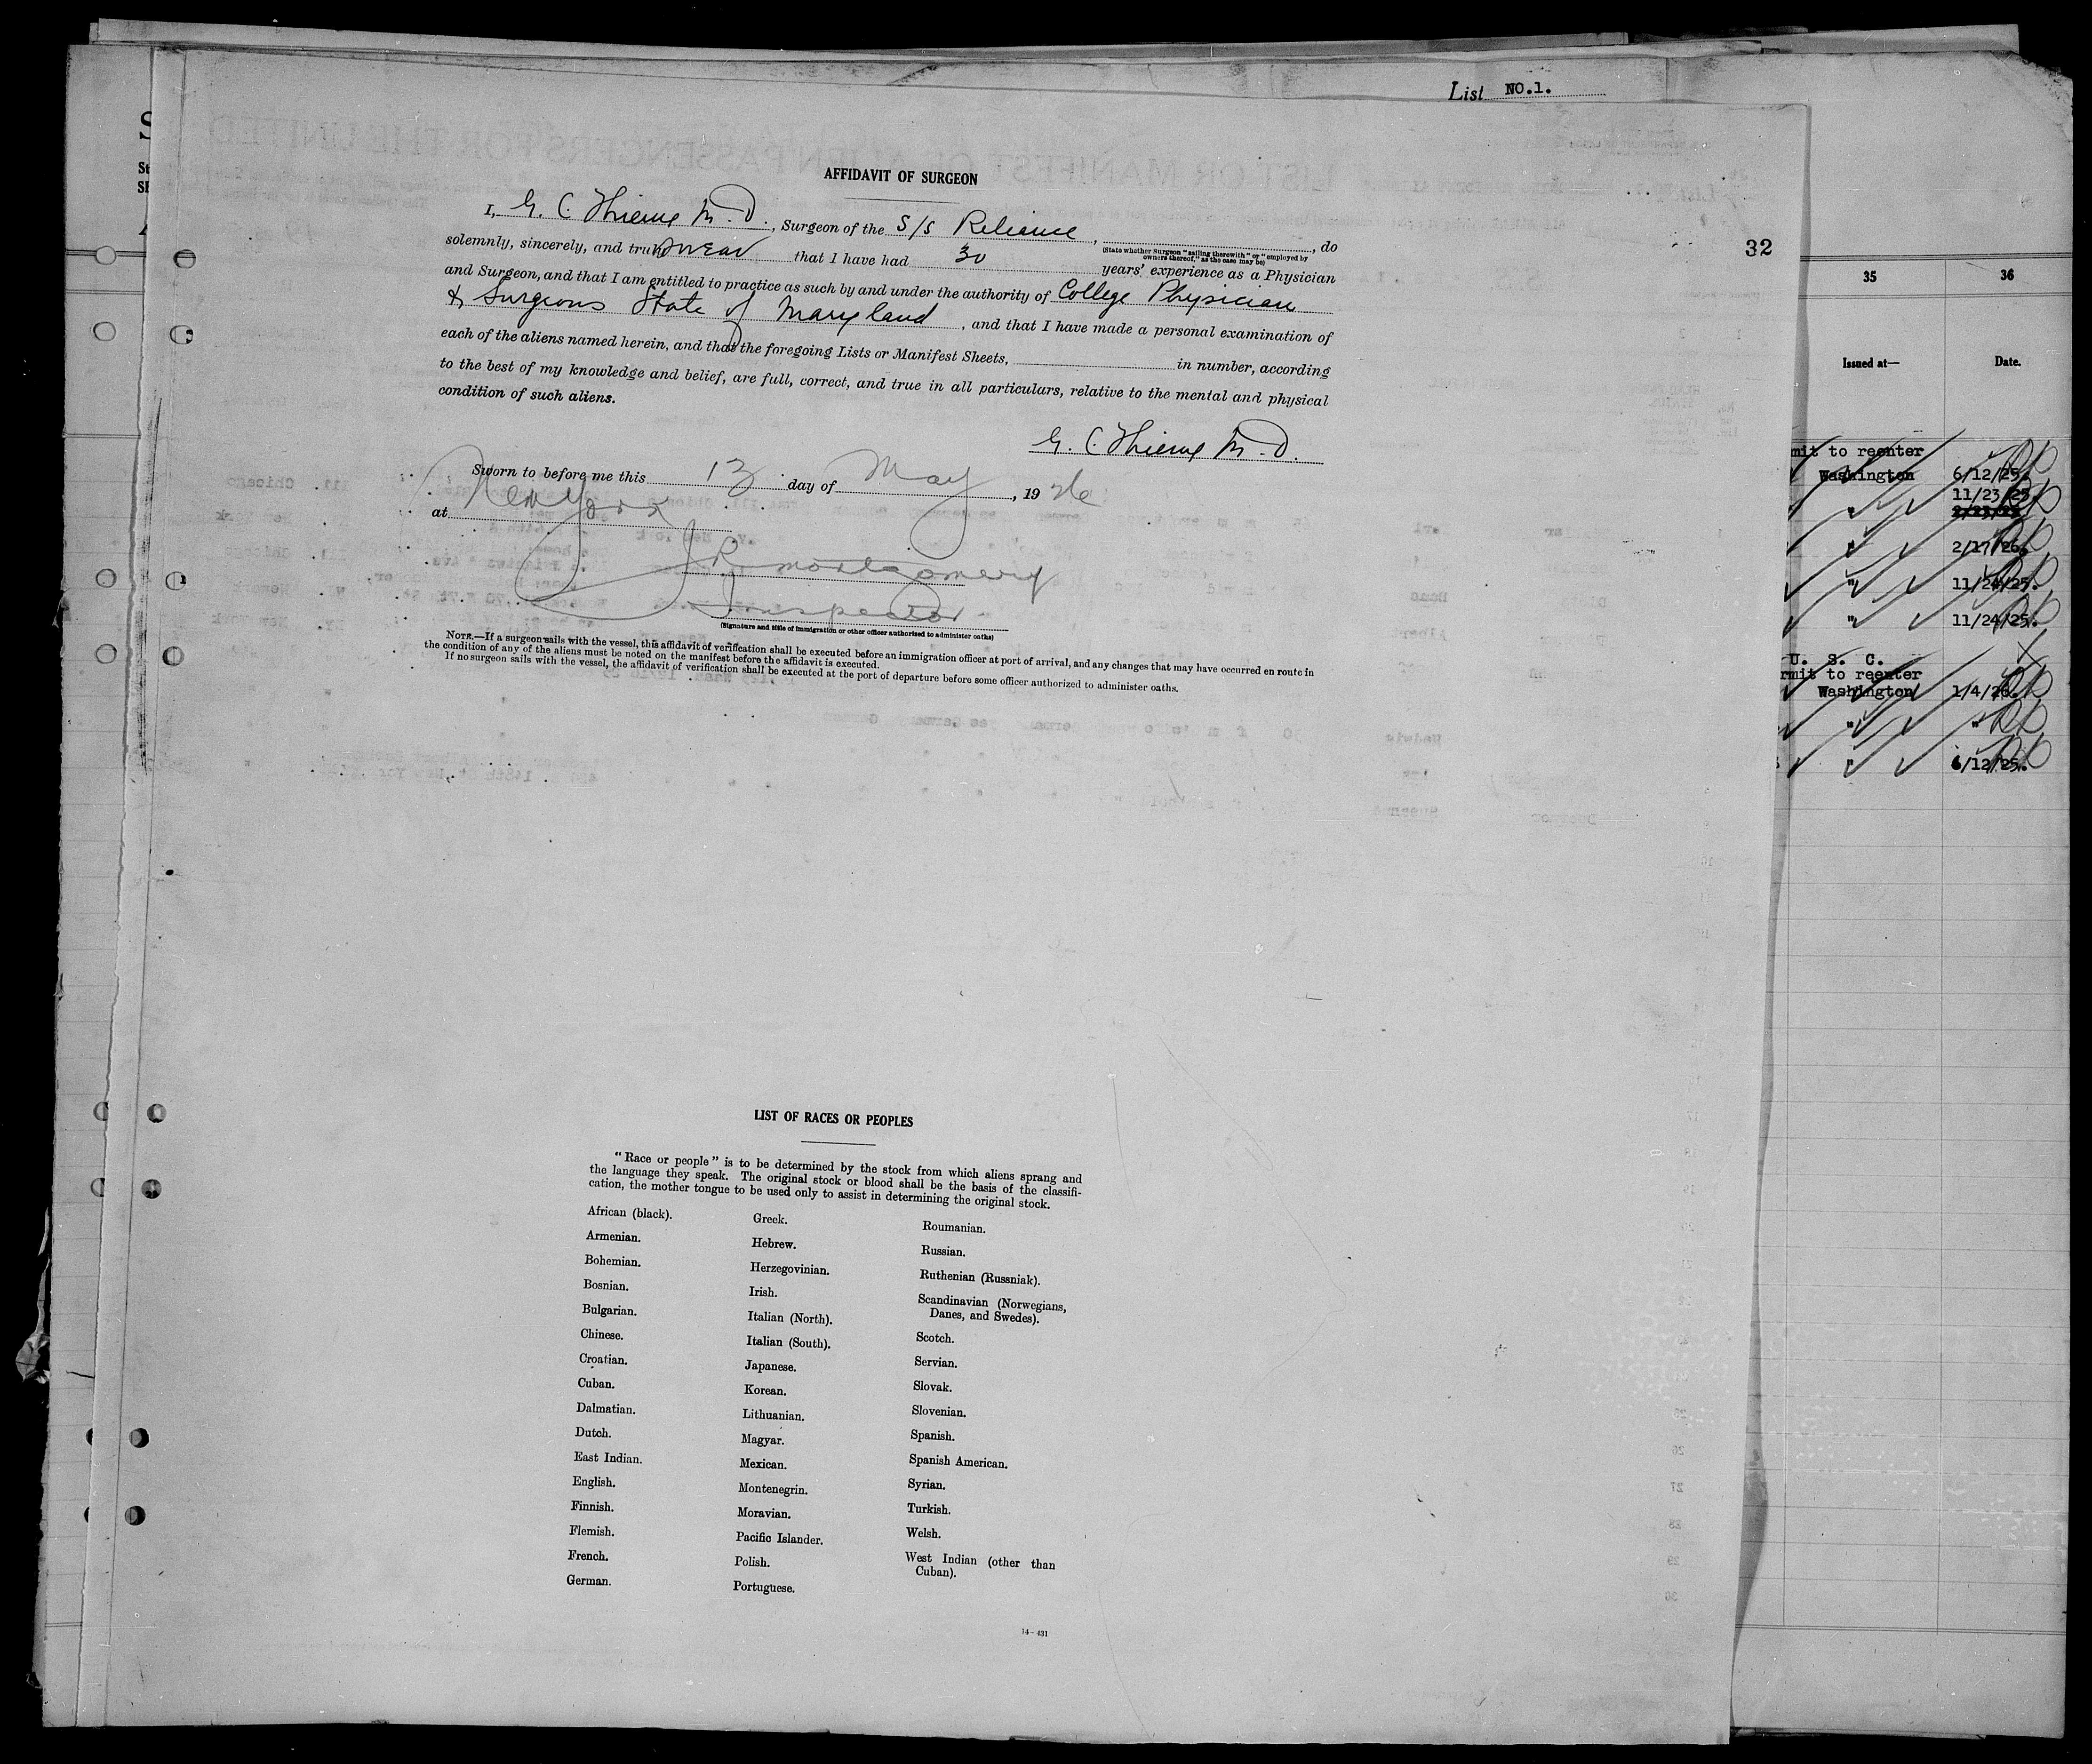 List NO.1.
AFFIDAVIT OF SURGEON
I, G. C. Thieme M.D., Surgeon of the S/S Reliance, , do
(State whether Surgeon "sailing therewith" or "employed by
owners thereof," as the case may be)
solemnly, sincerely, and truly swear that I have had 30 years' experience as a Physician
and Surgeon, and that I am entitled to practice as such by and under the authority of College Physician
& Surgeons State of Maryland, and that I have made a personal examination of
each of the aliens named herein, and that the foregoing Lists or Manifest Sheets, in number, according
to the best of my knowledge and belief, are full, correct, and true in all particulars, relative to the mental and physical
condition of such aliens.
G. C. Thieme M.D.
Sworn to before me this 13 day of May, 1926
at New York
J R Montgomery
Inspector
(Signature and title of immigration or other officer authorized to administer oaths)
NOTE.—If a surgeon sails with the vessel, this affidavit of verification shall be executed before an immigration officer at port of arrival, and any changes that may have occurred en route in
the condition of any of the aliens must be noted on the manifest before the affidavit is executed.
If no surgeon sails with the vessel, the affidavit of verification shall be executed at the port of departure before some officer authorized to administer oaths.
LIST OF RACES OR PEOPLES
"Race or people" is to be determined by the stock from which aliens sprang and
the language they speak. The original stock or blood shall be the basis of the classifi-
cation, the mother tongue to be used only to assist in determining the original stock.
African (black).
Armenian.
Bohemian.
Bosnian.
Bulgarian.
Chinese.
Croatian.
Cuban.
Dalmatian.
Dutch.
East Indian.
English.
Finnish.
Flemish.
French.
German.
Greek.
Hebrew.
Herzegovinian.
Irish.
Italian (North).
Italian (South).
Japanese.
Korean.
Lithuanian.
Magyar.
Mexican.
Montenegrin.
Moravian.
Pacific Islander.
Polish.
Portuguese.
Roumanian.
Russian.
Ruthenian (Russniak).
Scandinavian (Norwegians,
Danes, and Swedes).
Scotch.
Servian.
Slovak.
Slovenian.
Spanish.
Spanish American.
Syrian.
Turkish.
Welsh.
West Indian (other than
Cuban).
14-431
32
35 36
Issued at— Date.
mit to reenter
Washington 6/12/25.
11/23/25.
" 2/17/26.
" 11/24/25.
" 11/24/25.
U. S. C.
rmit to reenter
Washington 1/4/26.
" "
" 6/12/25.